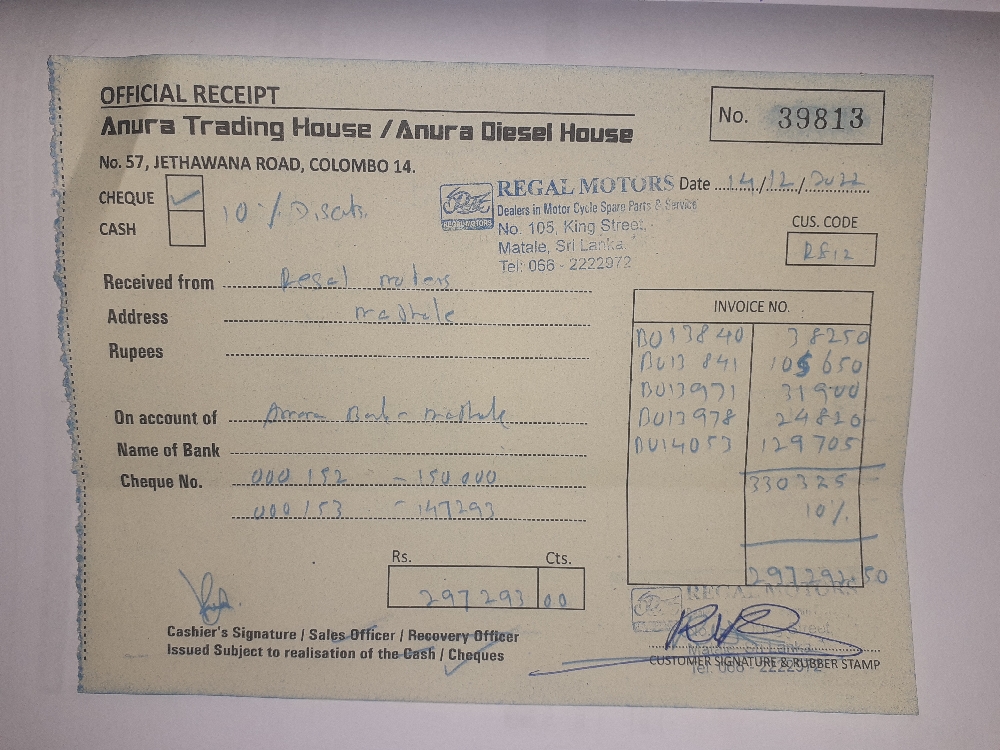 OFFICIAL RECEIPT
Anura Trading House / Anura Diesel House
No. 39813
No. 57, JETHAWANA ROAD, COLOMBO 14.
CHEQUE ✓
CASH
10 %
REGAL MOTORS
Dealers in Motor Cycle Spare Parts & Service
No. 105, King Street,
Matale, Sri Lanka.
Tel: 066 - 2222972
REGAL MOTORS
Date 14/12/2022
CUS. CODE
Received from Regal motors
Address
Rupees
On account of
Name of Bank
Cheque No. 000 152 - 150 000
000 153 - 147293
INVOICE NO.
BU13840 38250
BU13 841 105650
BU13971 31900
BU13978 24820
BU14053 129705
330325 -
10%
297292.50
Rs. Cts.
297293 00
Cashier's Signature / Sales Officer / Recovery Officer
Issued Subject to realisation of the Cash / Cheques
REGAL MOTORS
Matale, Sri Lanka.
Tel: 066 - 2222972
CUSTOMER SIGNATURE & RUBBER STAMP